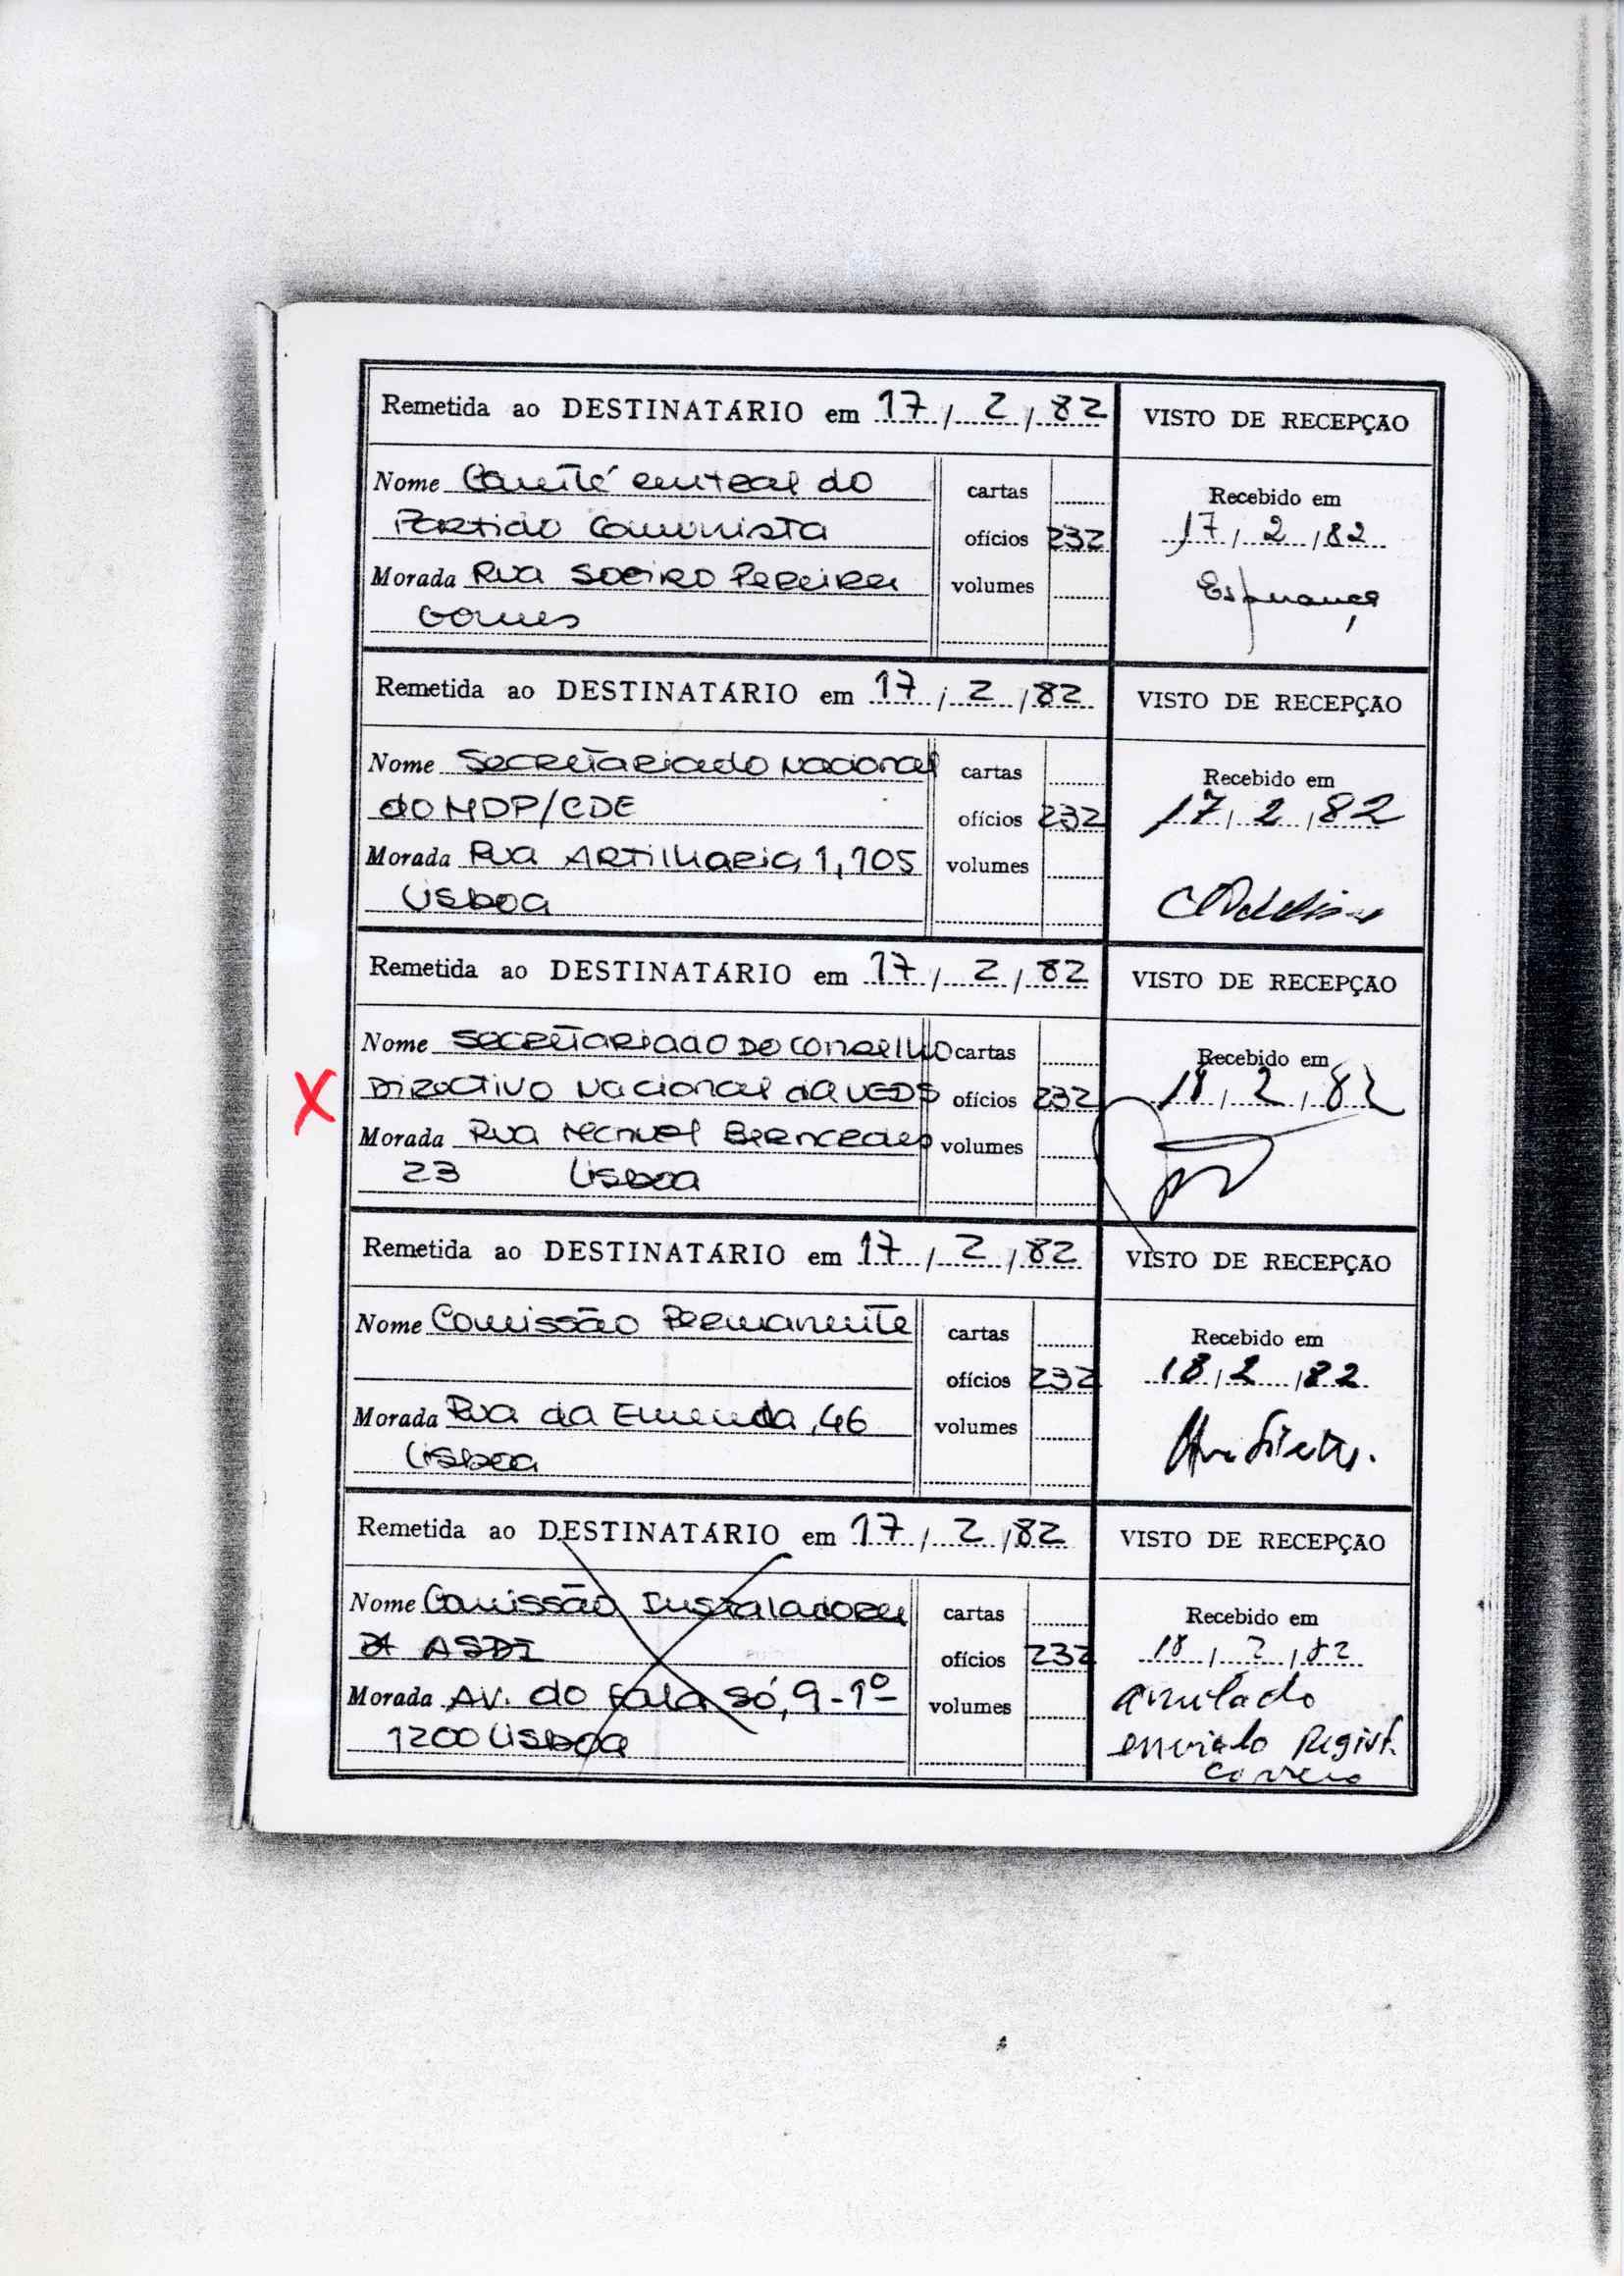 Remetida ao DESTINATÁRIO em 17/2/82 VISTO DE RECEPÇÃO
Nome Comité central do cartas Recebido em
Partido Comunista ofícios 232 17/2/82
Morada Rua Soeiro Pereira volumes Esperança
Gomes
Remetida ao DESTINATÁRIO em 17/2/82 VISTO DE RECEPÇÃO
Nome Secretariado Nacional cartas Recebido em
do MDP/CDE ofícios 232 17/2/82
Morada Rua Artilharia 1, 105 volumes
Lisboa
Remetida ao DESTINATÁRIO em 17/2/82 VISTO DE RECEPÇÃO
Nome Secretariado do Conselho cartas Recebido em
X Directivo Nacional da UEDS ofícios 232 18/2/82
Morada Rua Manuel Bernardes volumes
23 Lisboa
Remetida ao DESTINATÁRIO em 17/2/82 VISTO DE RECEPÇÃO
Nome Comissão Permanente cartas Recebido em
ofícios 232 18/2/82
Morada Rua da Emenda, 46 volumes
Lisboa
Remetida ao DESTINATÁRIO em 17/2/82 VISTO DE RECEPÇÃO
Nome Comissão Instaladora cartas Recebido em
ASDI ofícios 232 18/2/82
Morada Av. do Fala Só, 9-1º volumes anulado
1200 Lisboa enviado Regist.
correio